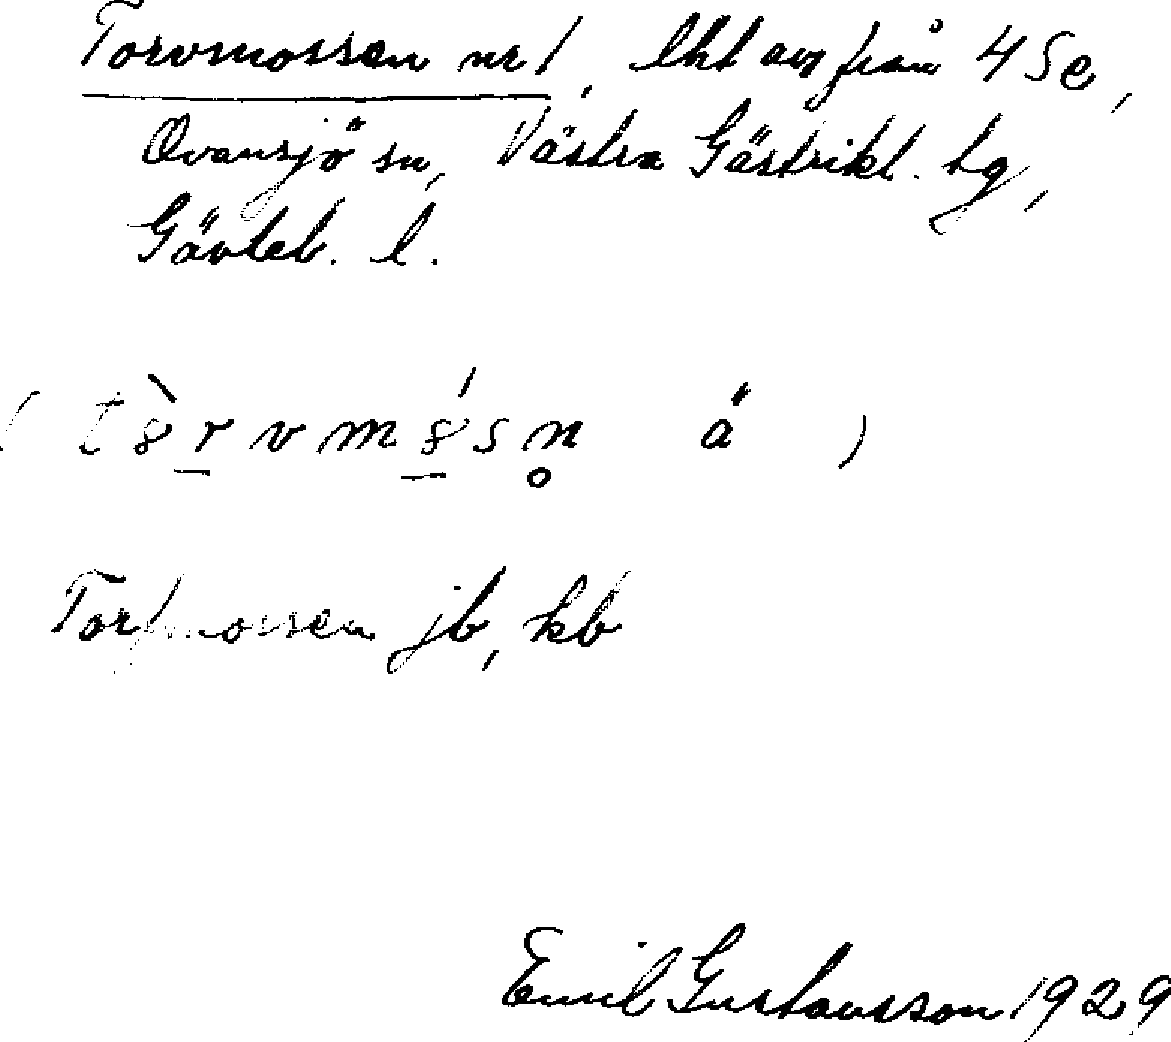 Torvmossen nr 1, lht avs från 4 Se,
Ovansjö sn, Västra Gästrikl. tg,
Gävleb. l.
( t8̀r̲vm8̲́sn̥ ä )
Torfmossen jb, kb
Emil Gustavsson 1929